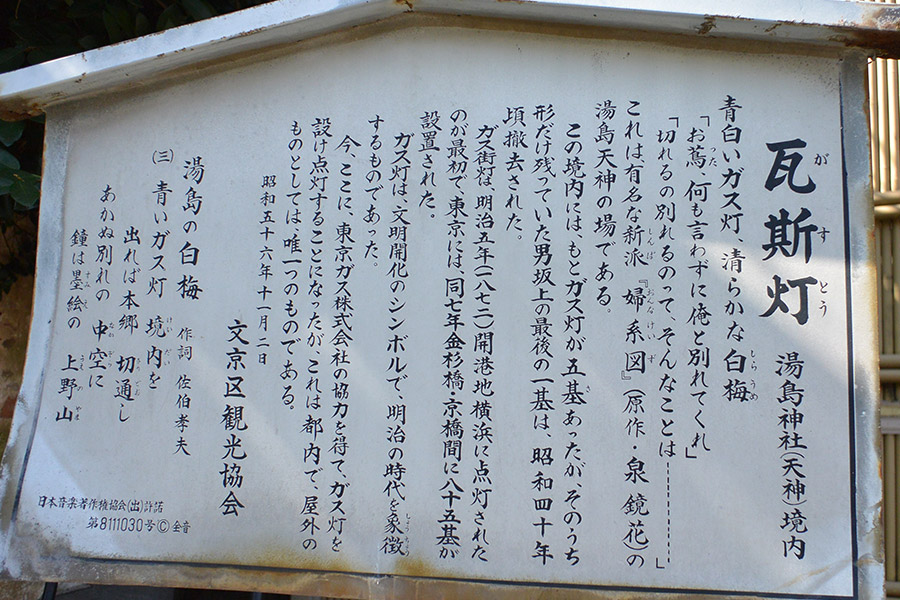 瓦斯灯 湯島神社(天神)境内
青白いガス灯 清らかな白梅
「お蔦、何も言わずに俺と別れてくれ」
「切れるの別れるのって、そんなことは---------」
これは有名な新派『婦系図』(原作・泉鏡花)の
湯島天神の場である。
この境内には、もとガス灯が五基あったが、そのうち
形だけ残っていた男坂上の最後の一基は、昭和四十年
頃撤去された。
ガス街灯は、明治五年(一八七二)開港地横浜に点灯された
のが最初で、東京には、同七年金杉橋・京橋間に八十五基が
設置された。
ガス灯は、文明開化のシンボルで、明治の時代を象徴
するものであった。
今、ここに、東京ガス株式会社の協力を得て、ガス灯を
設け点灯することになったが、これは都内で、屋外の
ものとしては、唯一つのものである。
昭和五十六年十一月二日
文京区観光協会
湯島の白梅 作詞 佐伯孝夫
(三) 青いガス灯 境内を
出れば本郷 切通し
あかぬ別れの 中空に
鐘は墨絵の 上野山
日本音楽著作権協会(出)許諾
第8111030号Ⓒ全音